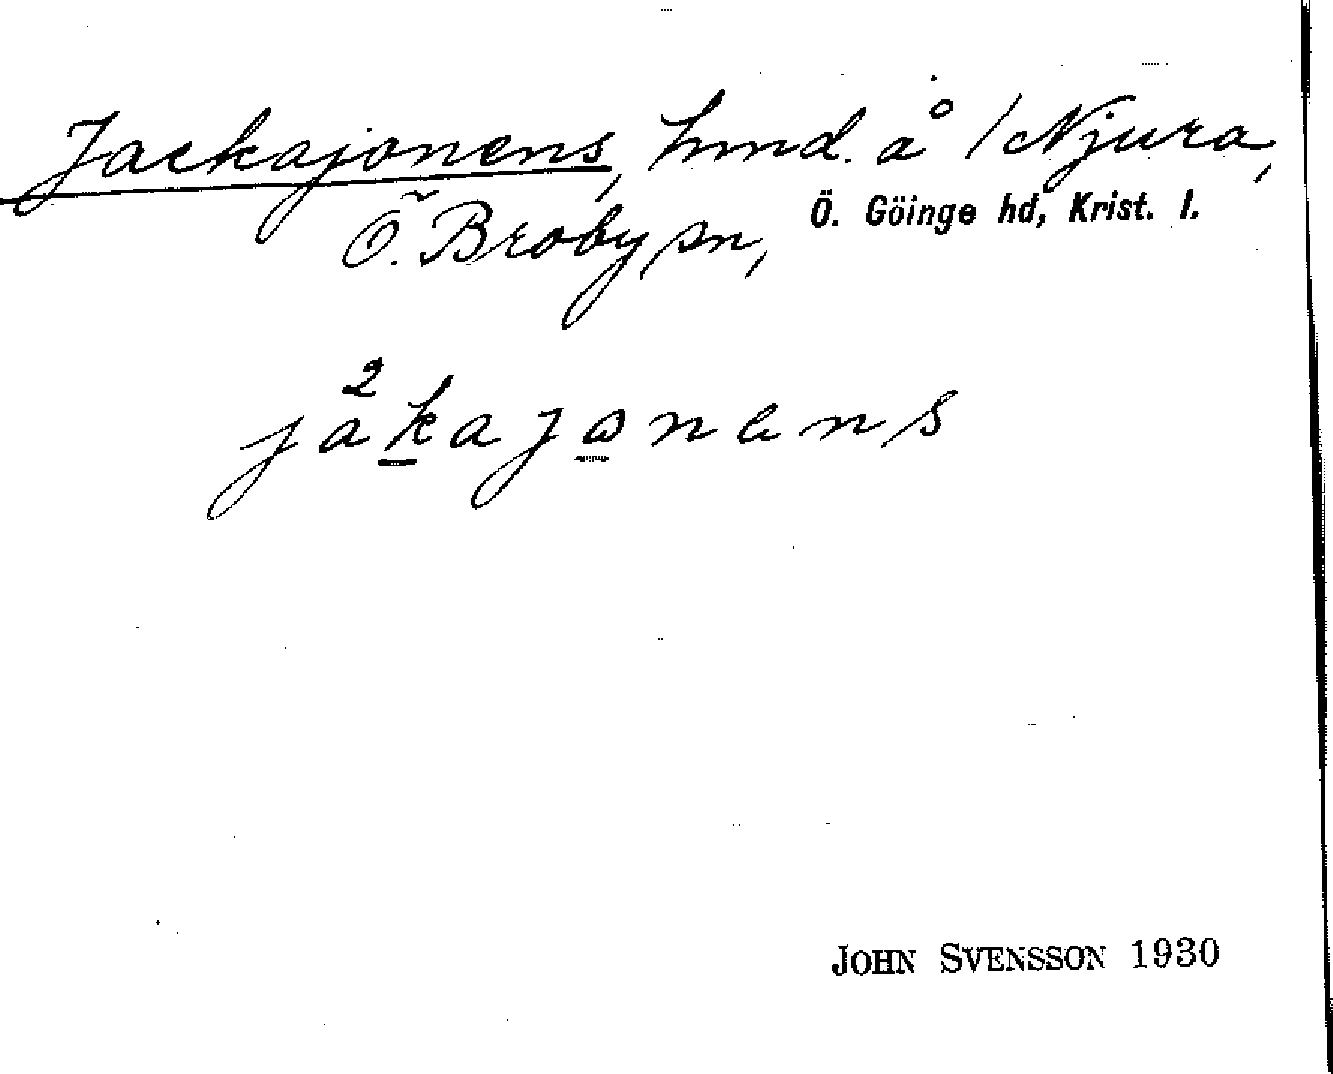 Jackajonens, hmd. å 1 Njura,
Ö. Broby sn, Ö. Göinge hd, Krist. l.
2
jakajonens
JOHN SVENSSON 1930